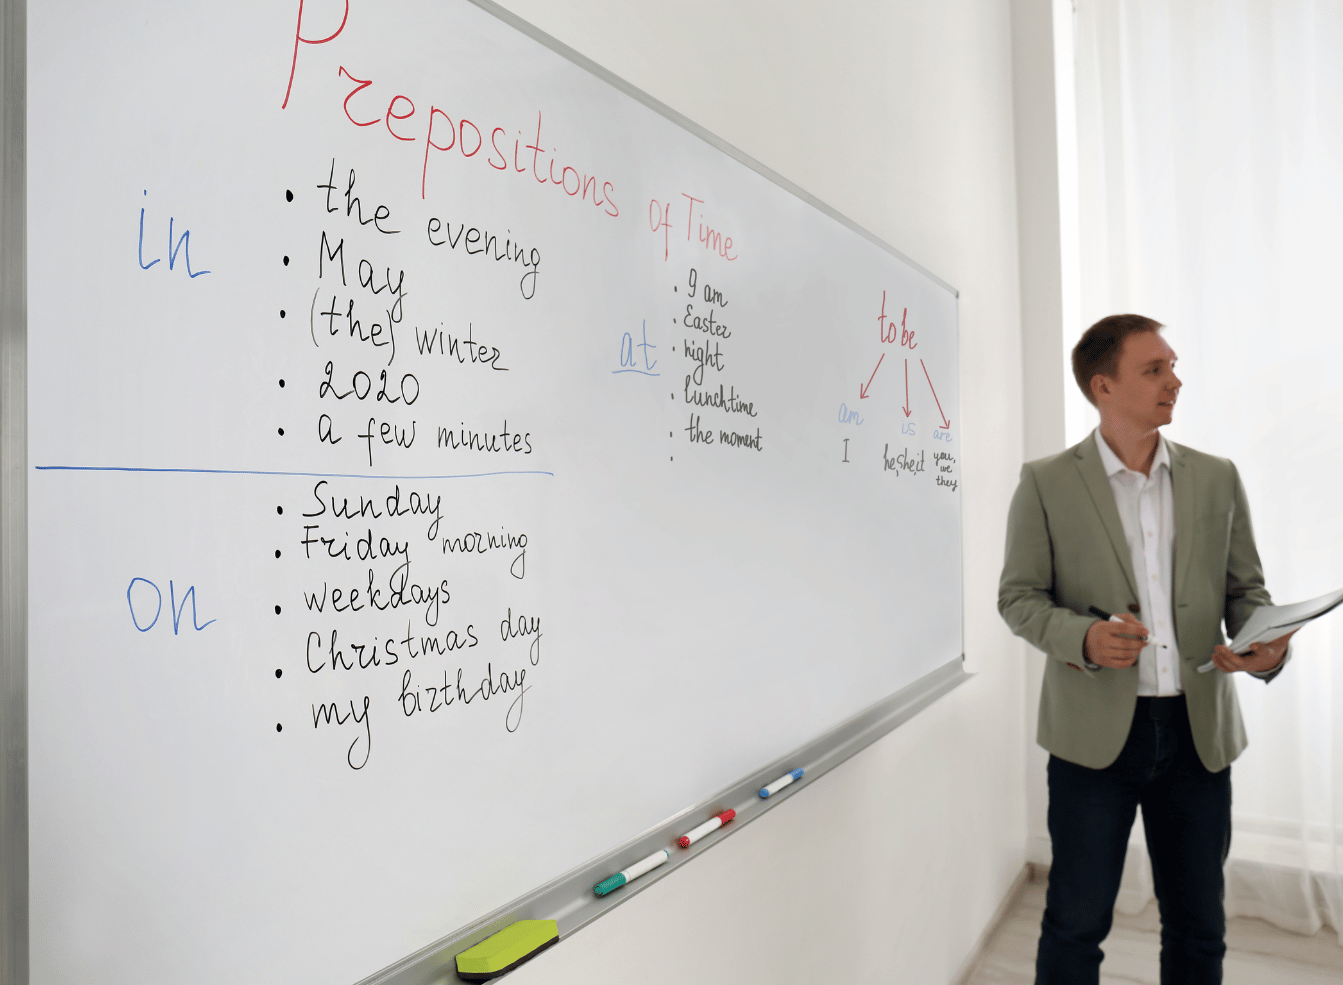 Prepositions of Time
in
• the evening
• May
• (the) winter
• 2020
• a few minutes
on
• Sunday
• Friday morning
• weekdays
• Christmas day
• my birthday
at
• 9 am
• Easter
• night
• lunchtime
• the moment
•
to be
am is are
I
he, she, it
you,
we
they